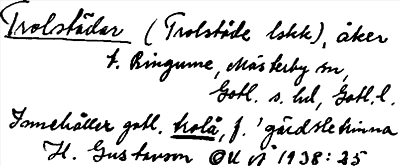 Trolstädar (Trolstäde lskk), åker
t. Ringume, Mästerby sn,
Gotl. s. hd, Gotl. l.
Innehåller gotl. trolå, f. 'gärdslekvinna
H. Gustavson 1938: 25